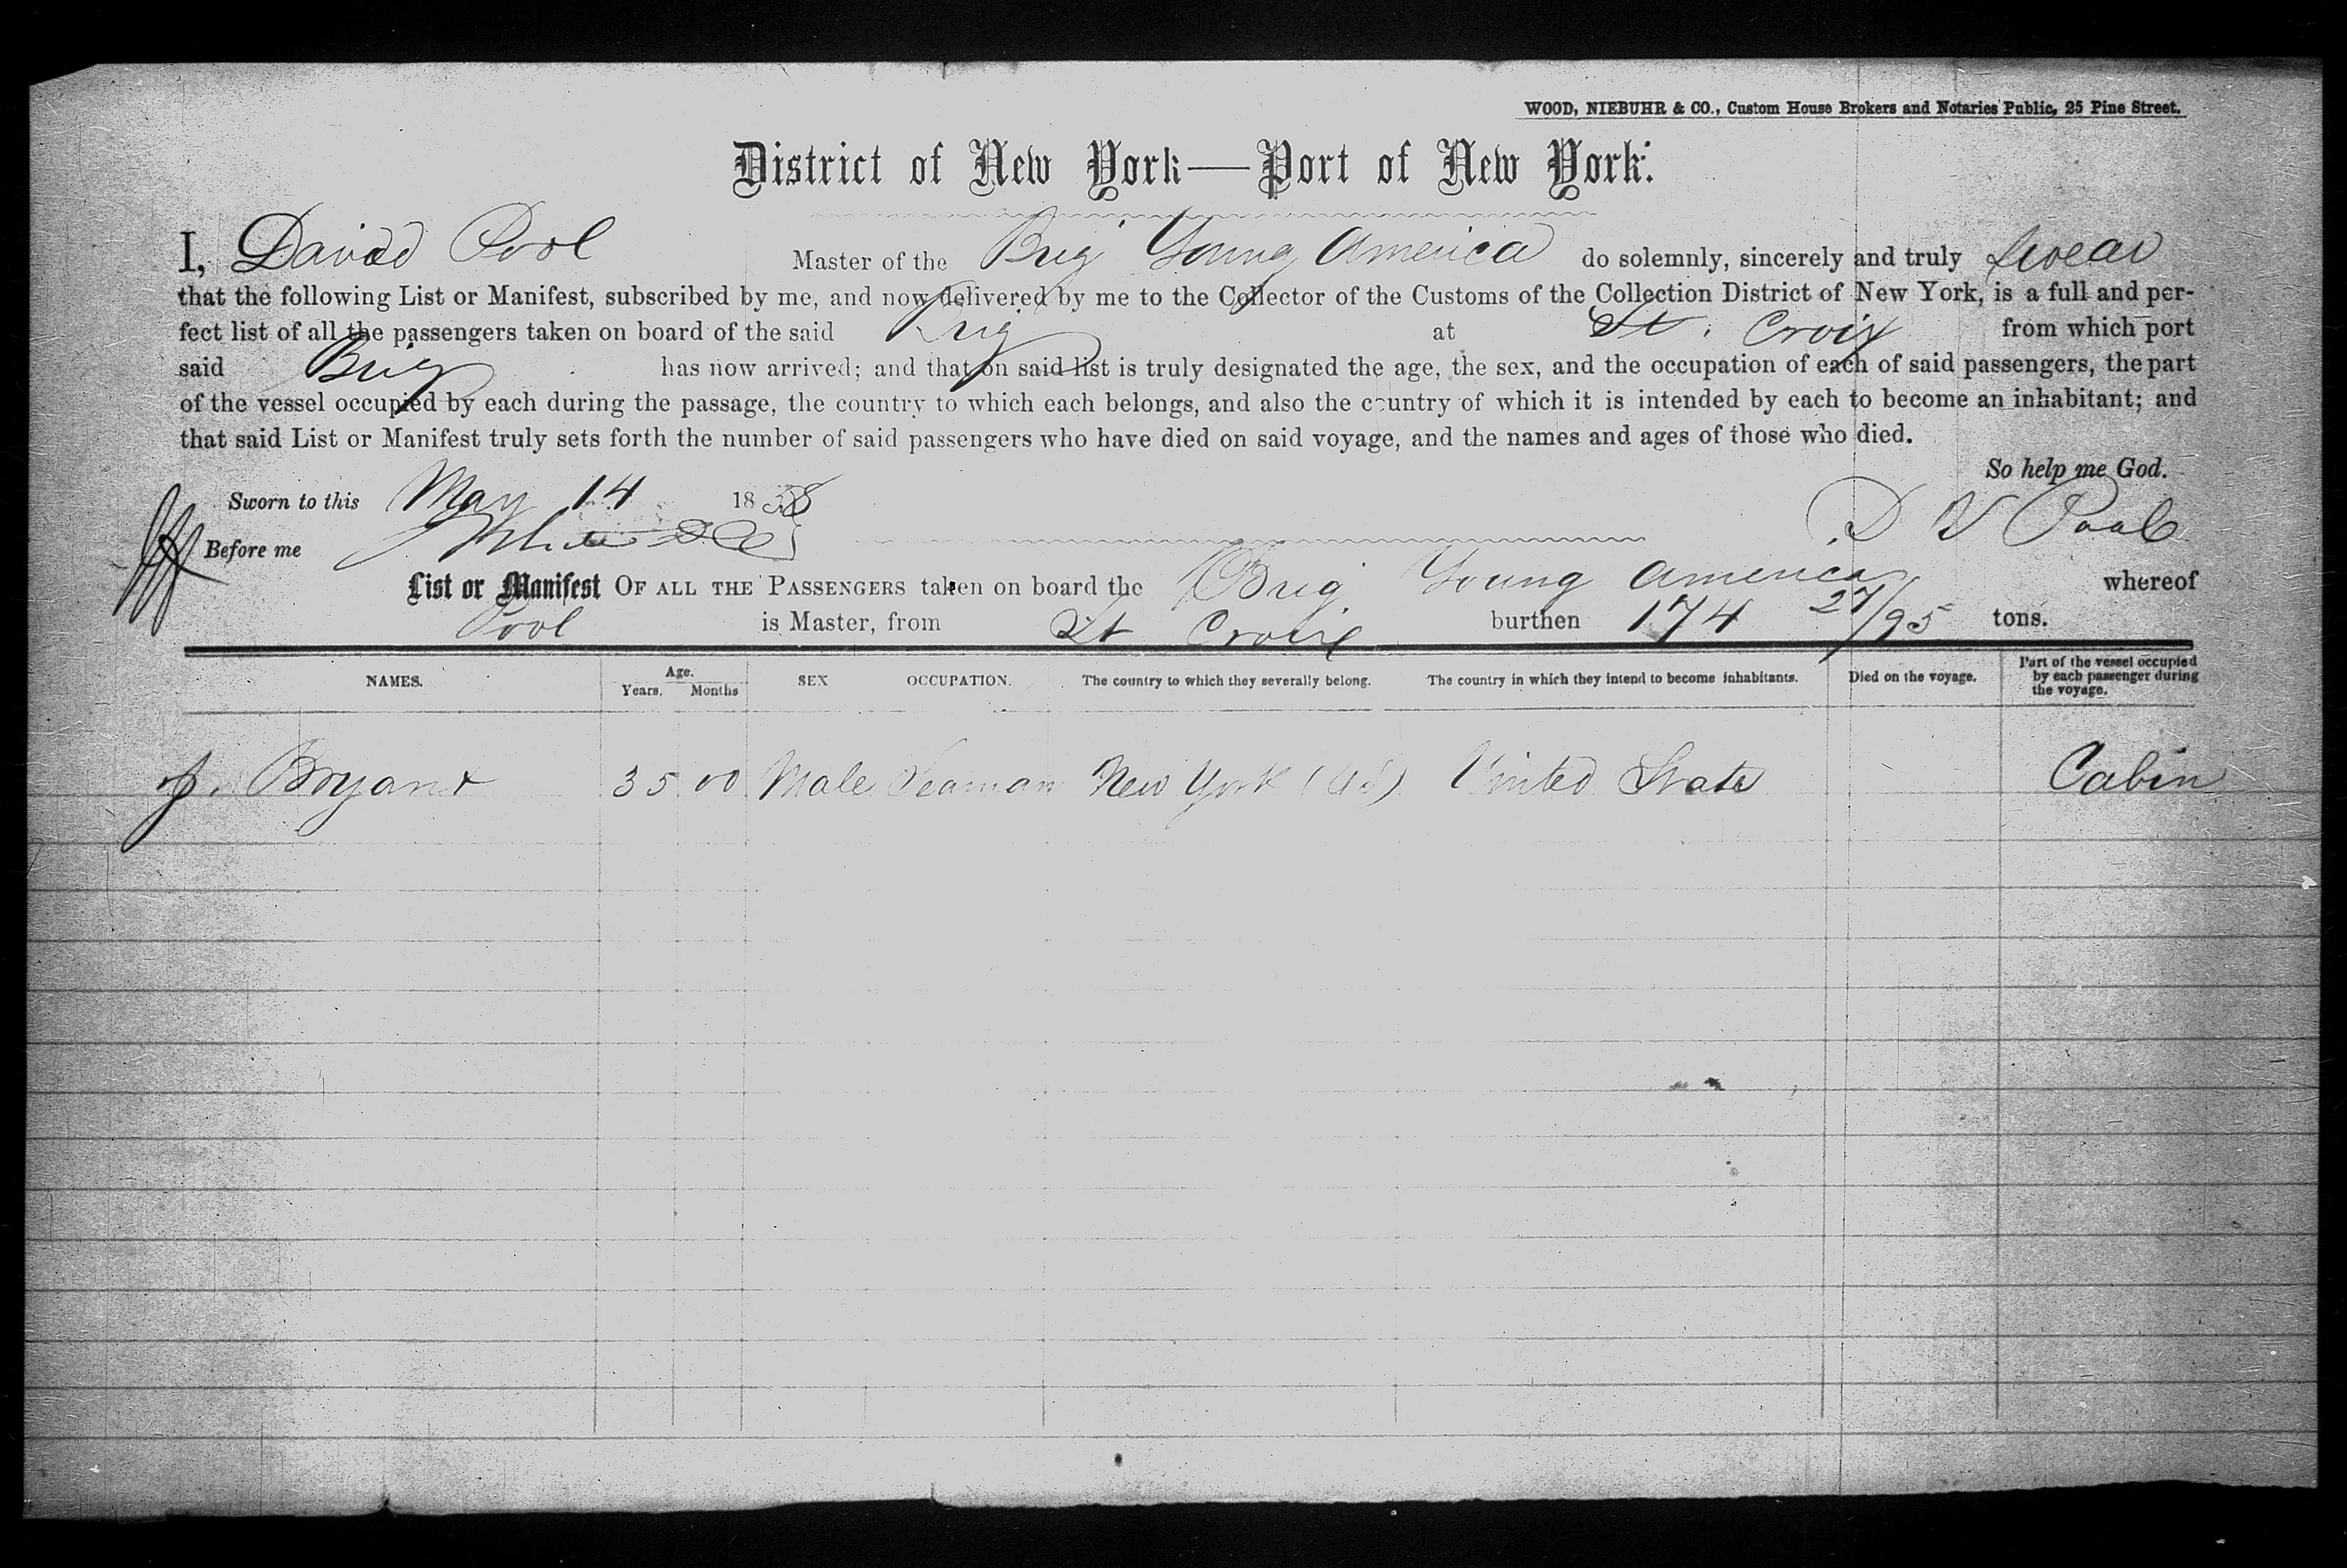 WOOD, NIEBUHR & CO., Custom House Brokers and Notaries Public, 25 Pine Street.
District of New York—Port of New York:
I, David Pool Master of the Brig Young America do solemnly, sincerely and truly swear
that the following List or Manifest, subscribed by me, and now delivered by me to the Collector of the Customs of the Collection District of New York, is a full and per-
fect list of all the passengers taken on board of the said Brig at St. Croix from which port
said Brig has now arrived; and that on said list is truly designated the age, the sex, and the occupation of each of said passengers, the part
of the vessel occupied by each during the passage, the country to which each belongs, and also the country of which it is intended by each to become an inhabitant; and
that said List or Manifest truly sets forth the number of said passengers who have died on said voyage, and the names and ages of those who died.
So help me God.
Sworn to this May 14 1858
Before me
D V Pool
List or Manifest OF ALL THE PASSENGERS taken on board the Brig Young America whereof
Pool is Master, from St Croix burthen 174 27/95 tons.
NAMES. Age. Years. Months SEX OCCUPATION. The country to which they severally belong. The country in which they intend to become inhabitants. Died on the voyage. Part of the vessel occupied by each passenger during the voyage.
J. Bryant 35 00 Male Seaman New York (US) United State Cabin